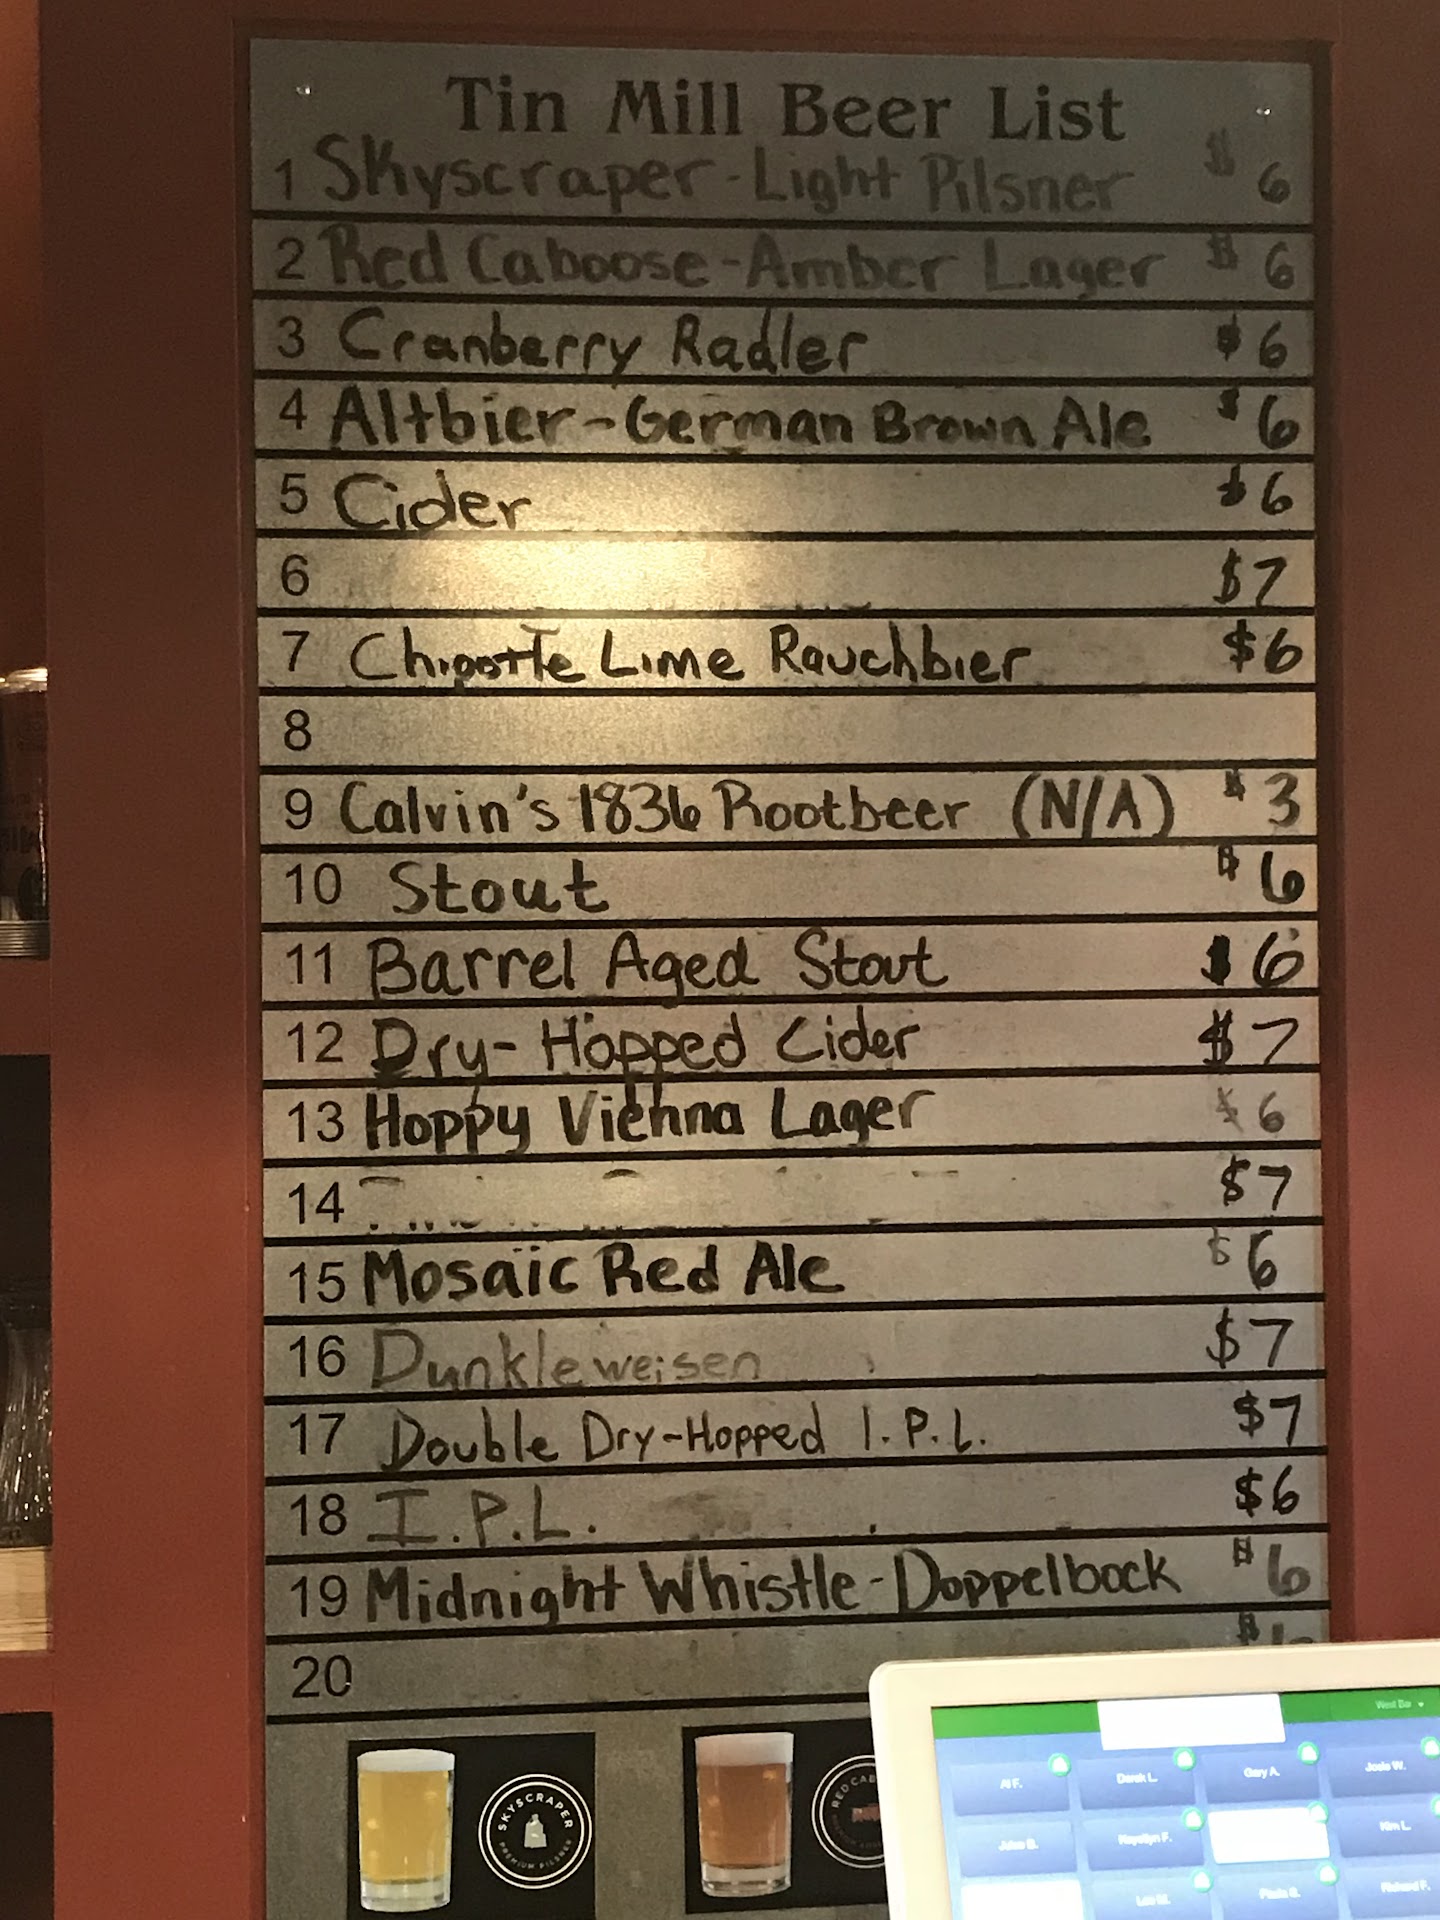 Tin Mill Beer List
1 Skyscraper - Light Pilsner $ 6
2 Red Caboose - Amber Lager $ 6
3 Cranberry Radler $ 6
4 Altbier - German Brown Ale $ 6
5 Cider $ 6
6 $7
7 Chipotle Lime Rauchbier $6
8
9 Calvin's 1836 Rootbeer (N/A) $ 3
10 Stout $ 6
11 Barrel Aged Stout $ 6
12 Dry-Hopped Cider $ 7
13 Hoppy Vienna Lager $ 6
14 $7
15 Mosaic Red Ale $ 6
16 Dunkleweisen $7
17 Double Dry-Hopped I.P.L. $7
18 I.P.L. $6
19 Midnight Whistle - Doppelbock $ 6
20 $
SKYSCRAPER
PREMIUM PILSNER
RED CAB
West Bar
Al F. Derek L. Gary A. Josie W.
Kim L.
Lee M. Paula S. Richard F.